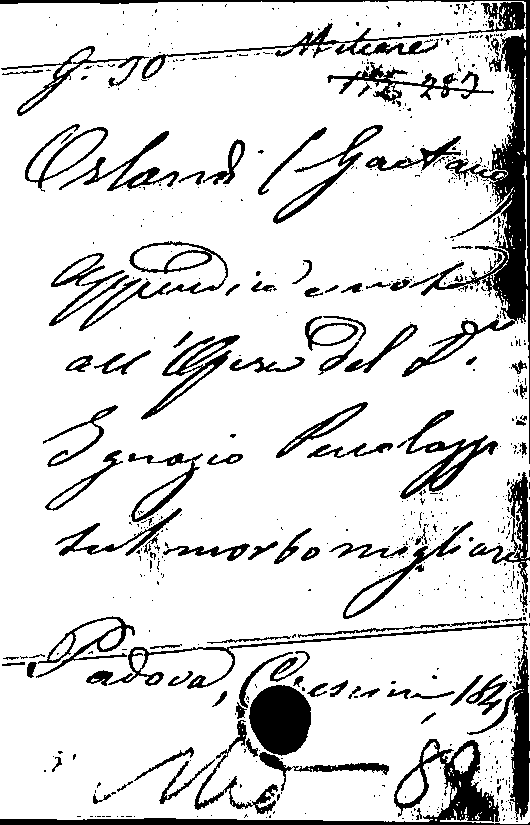 G. 30 Miliare
115 283
Orlandi (Gaetano)
Appendice e note
all'Opera del Dr
Ignazio Penolazzi
sul morbo migliare
Padova, Crescini, 184